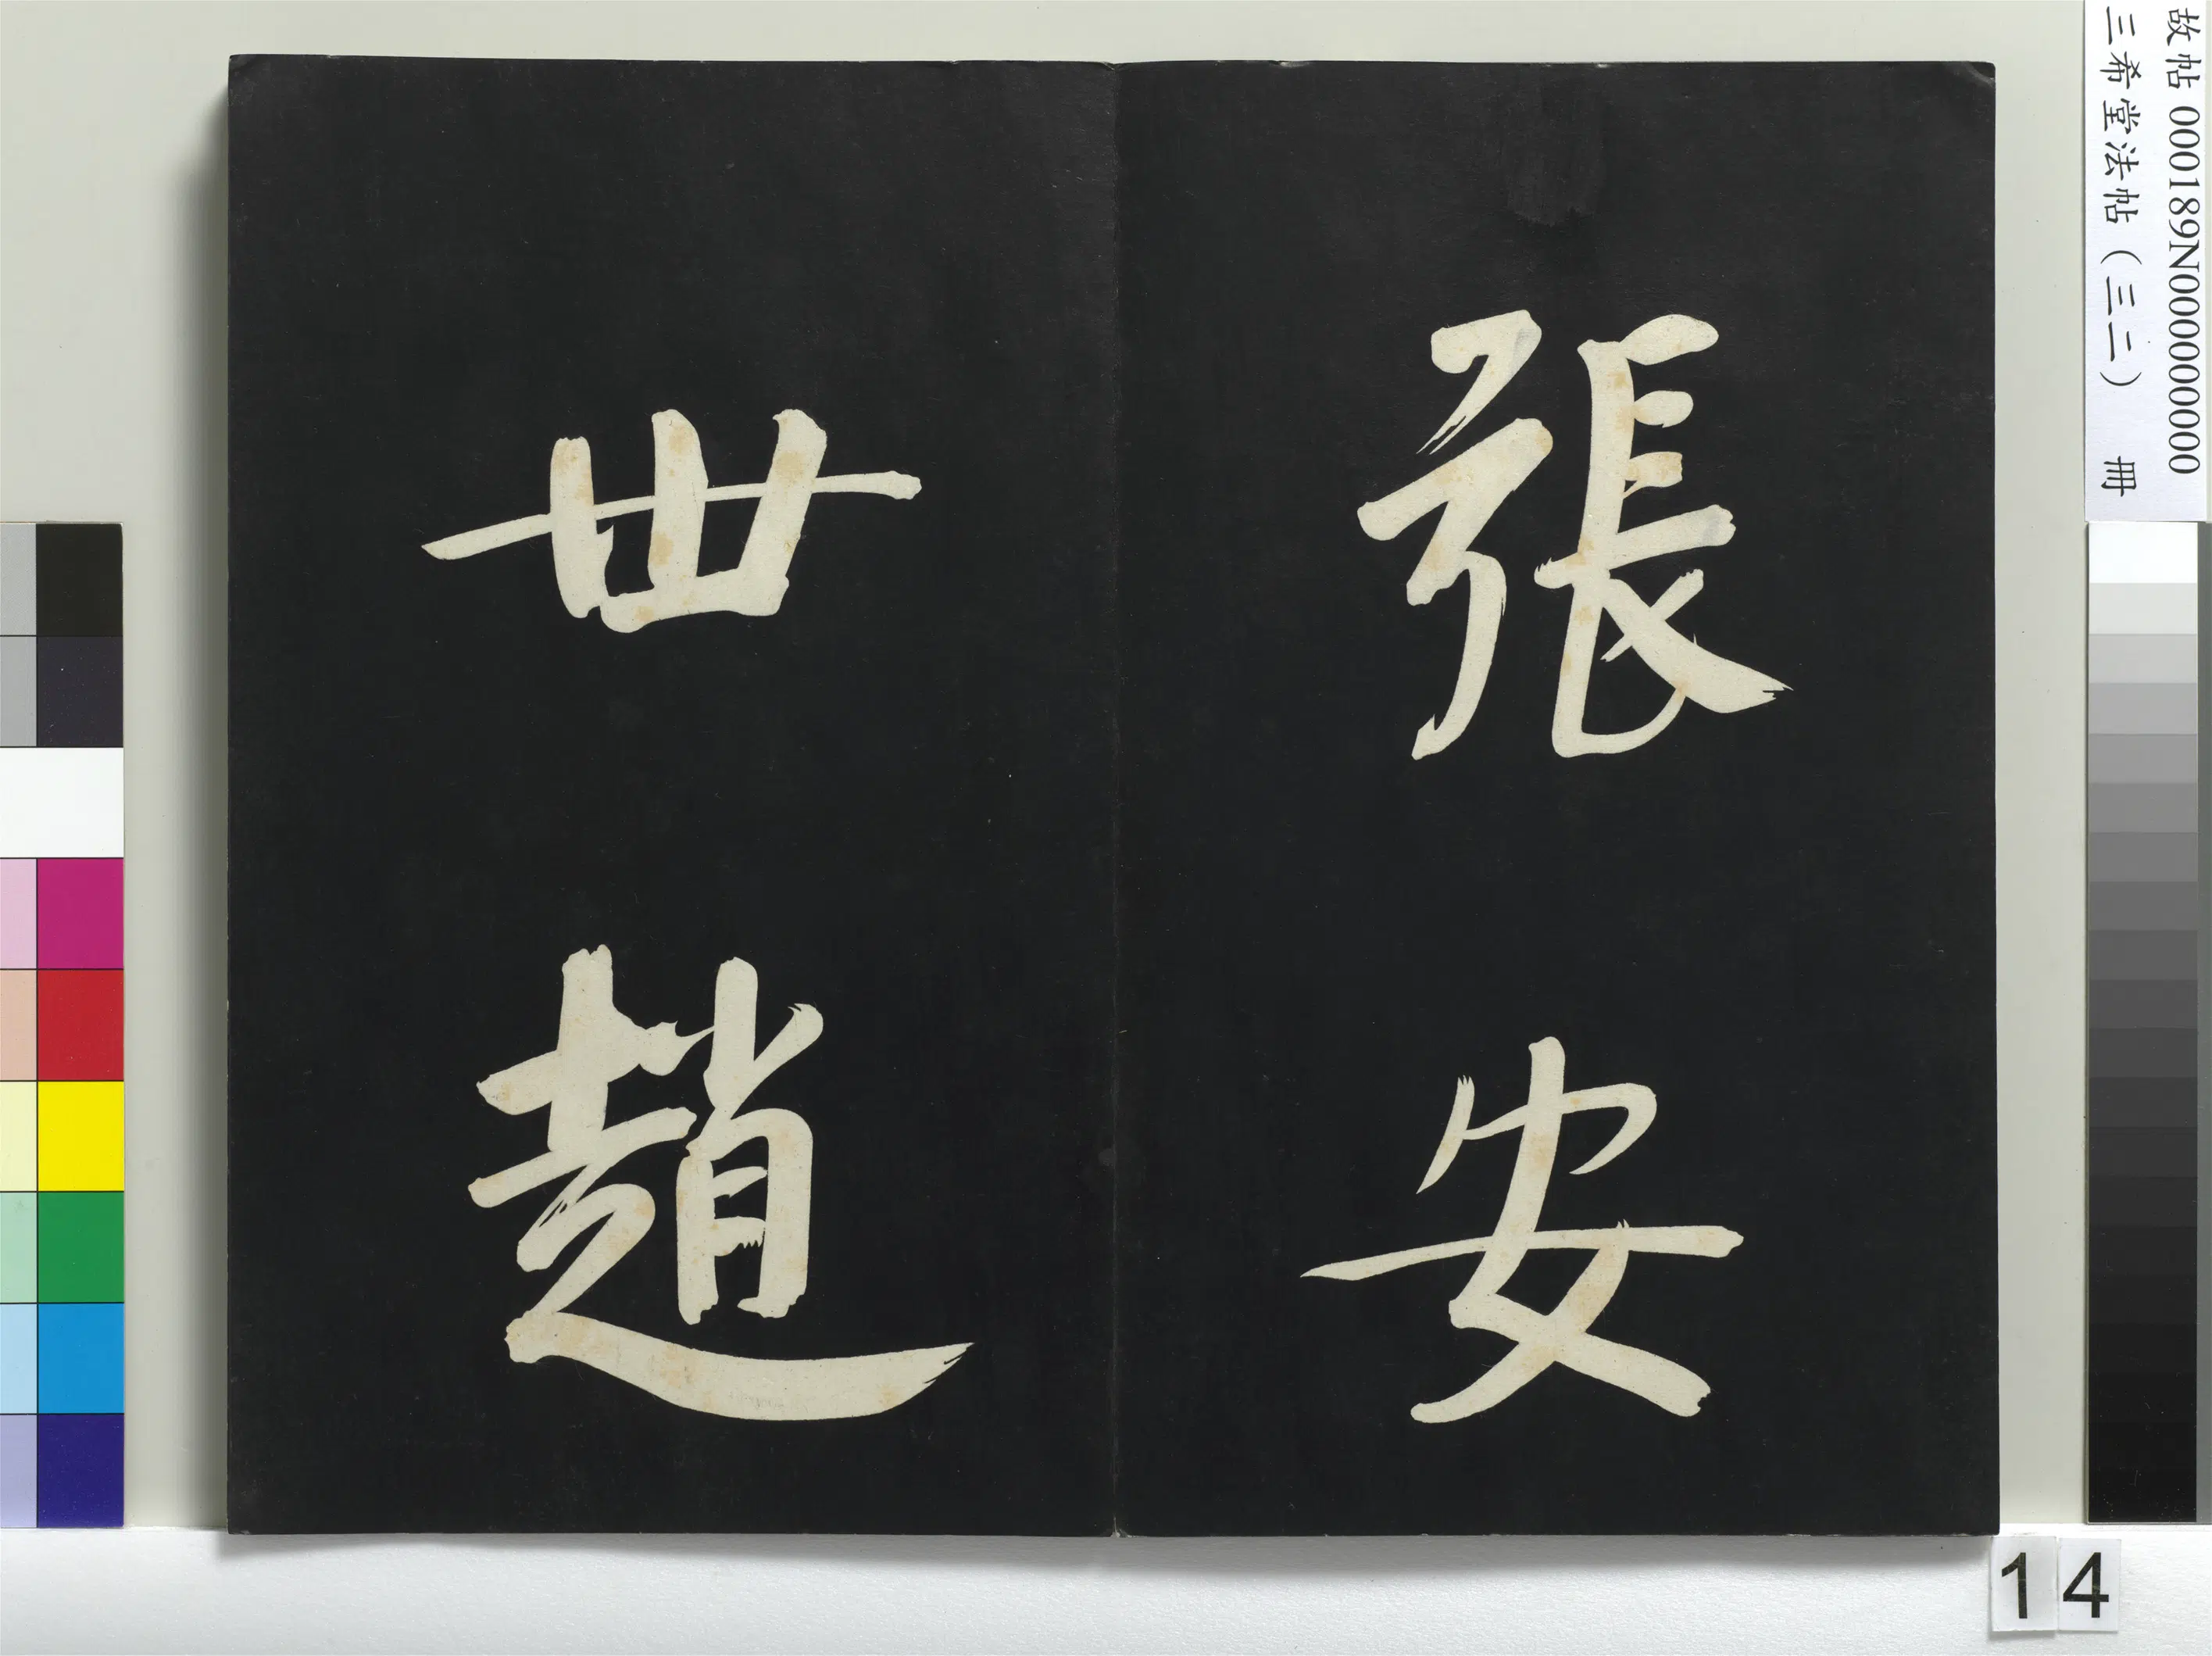 張安
世趙
故帖 000189N000000000
三希堂法帖（三二） 冊
14